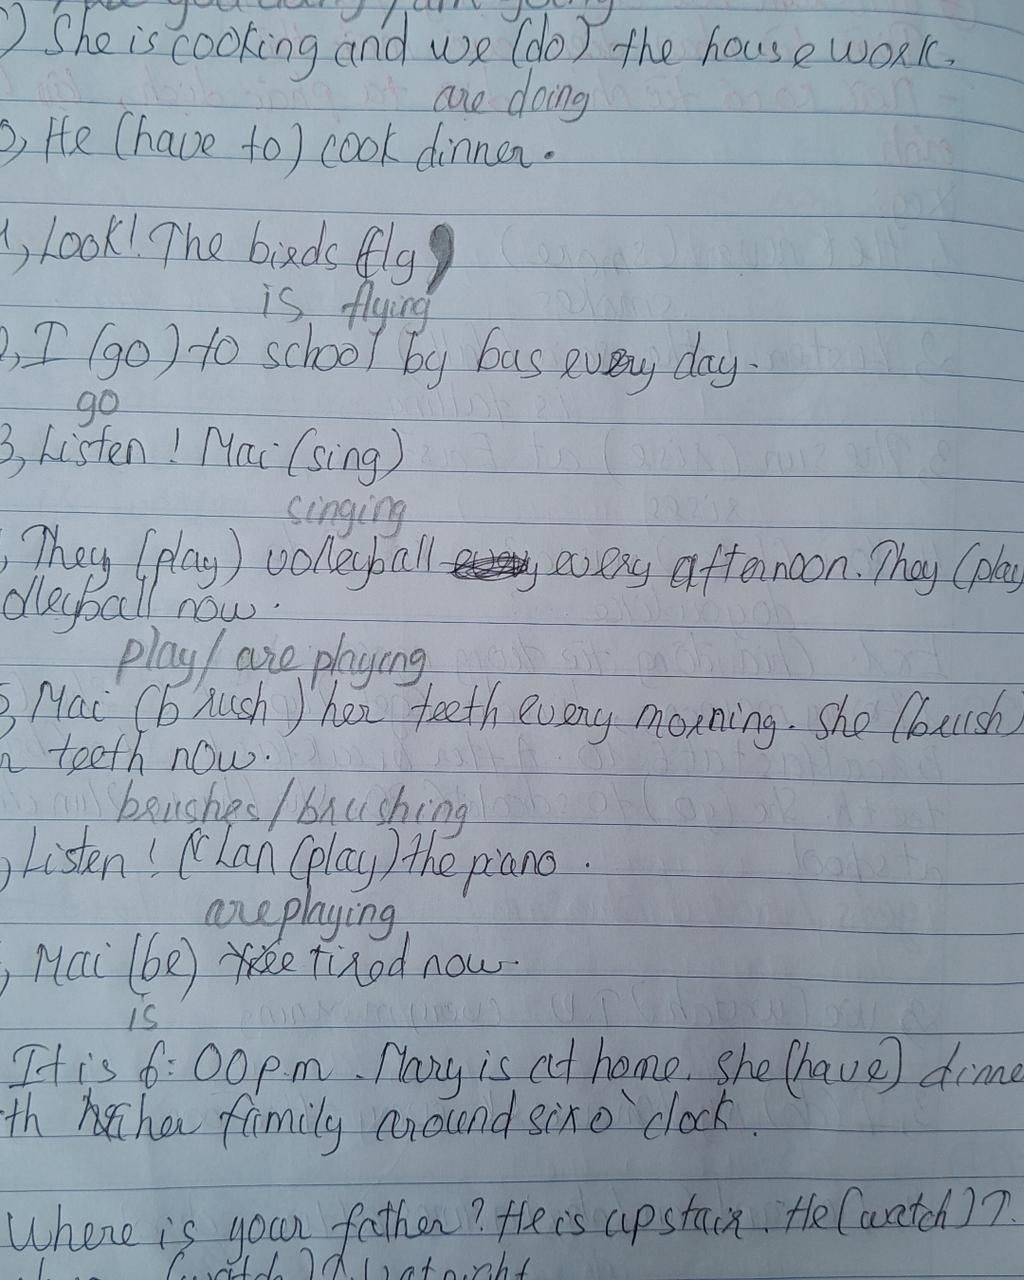 ) She is cooking and we (do) the housework.
are doing
), He (have to) cook dinner.
1, Look! The birds (fly)
is flying
, I (go) to school by bus every day.
go
3, Listen! Mai (sing)
singing
, They (play) volleyball every afternoon. They (play
olleyball now.
play/ are playing
5, Mai (brush) her teeth every morning. She (brush)
teeth now.
brushes/brushing
, Listen! Lan (play) the piano.
are playing
, Mai (be) tired now.
is
It is 6:00 p.m. Mary is at home. She (have) dinne
th her family around six o'clock.
Where is your father? He is upstair. He (watch) T.
(watch) at night